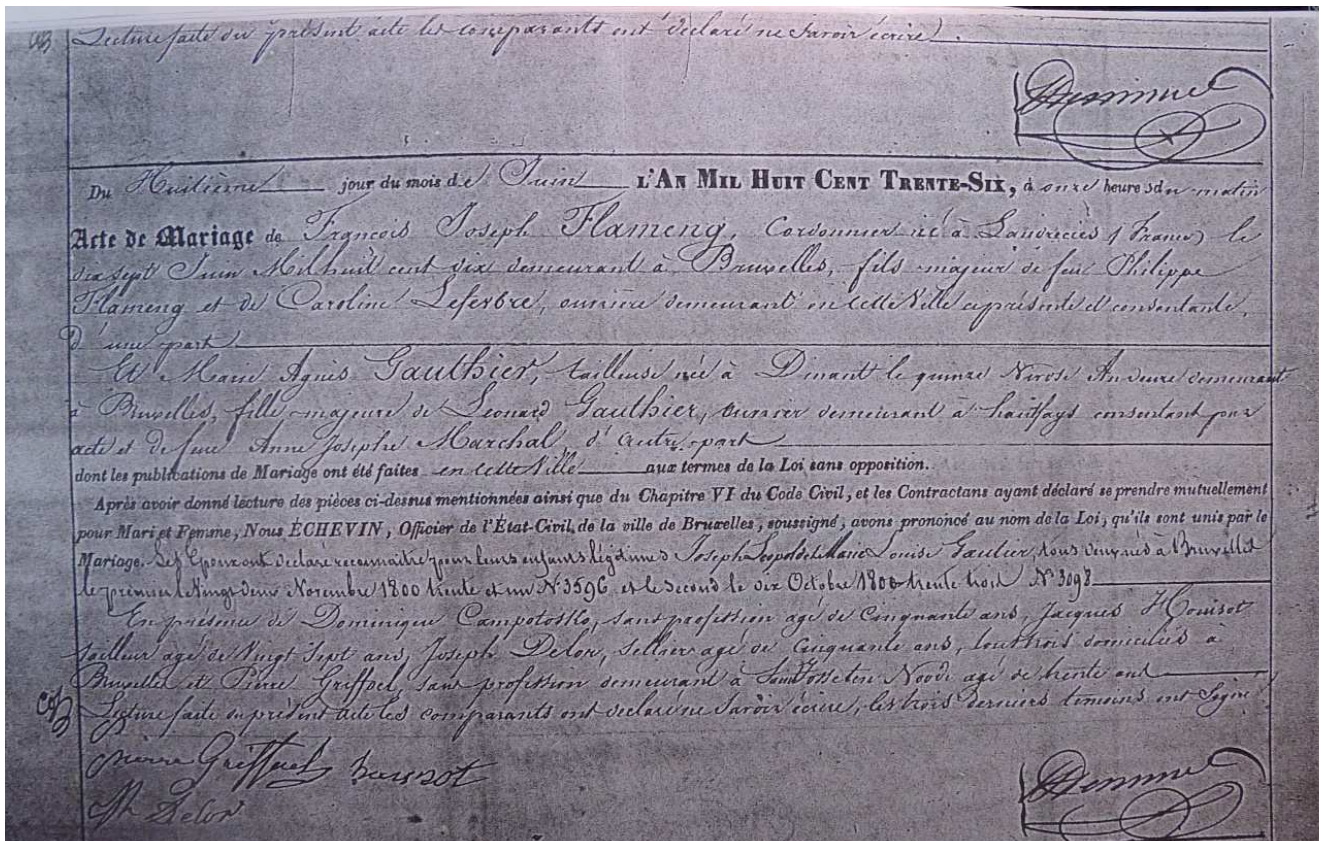 Lecture faite du présent acte les comparants ont déclaré ne Savoir écrire.
Du Huitième jour du mois de Juin L'AN MIL HUIT CENT TRENTE-SIX, à onze heures du matin
Acte de Mariage de François Joseph Flameng, Cordonnier né à Landrecies (France) le
dix sept Juin Mil huit cent dix demeurant à Bruxelles, fils majeur de feu Philippe
Flameng et de Caroline Lefevbre, ouvrière demeurant en cette Ville ci présente et consentante,
d'une part
Et Marie Agnès Gauthier, tailleuse née à Dinant le quinze Nivose An demeurant
à Bruxelles, fille majeure de Léonard Gauthier, ouvrier demeurant à hautfays consentant par
acte et de feue Anne Josephe Marchal, d'autre part
dont les publications de Mariage ont été faites en cette Ville aux termes de la Loi sans opposition.
Après avoir donné lecture des pièces ci-dessus mentionnées ainsi que du Chapitre VI du Code Civil, et les Contractans ayant déclaré se prendre mutuellement
pour Mari et Femme, Nous ÉCHEVIN, Officier de l'État-Civil, de la ville de Bruxelles, soussigné, avons prononcé au nom de la Loi, qu'ils sont unis par le
Mariage. Les Epoux ont déclaré reconnaitre pour leurs enfants légitimes Joseph Leopold et Marie Louise Gautier, tous deux nés à Bruxelles
le premier le Vingt deux Novembre 1800 trente et un N° 3596 et le second le dix Octobre 1800 trente trois N° 3098
En présence de Dominique Campotosto, sans profession agé de Cinquante ans, Jacques
tailleur agé de Vingt Sept ans, Joseph Delor, Sellier agé de Cinquante ans, tous trois domiciliés à
Bruxelles et Pierre Griffoel, sans profession demeurant à Saint Josse ten Noode agé de trente ans
Lecture faite du présent acte les comparants ont déclaré ne Savoir écrire, les trois derniers témoins ont Signé
Pierre Griffoel
Delor